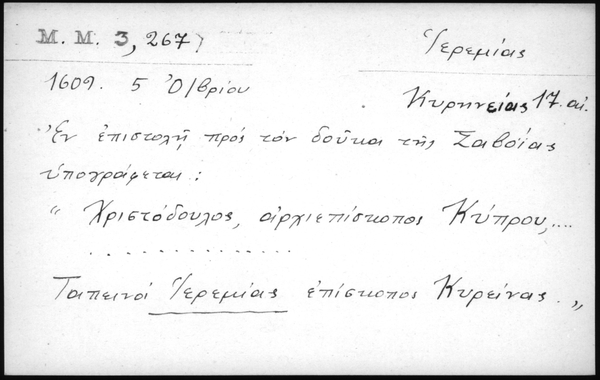 Μ. Μ. 3, 267)
Ἱερεμίας
1609. 5 Ὀ/βρίου
Κυρηνείας 17. αἰ.
Ἐν ἐπιστολῇ πρός τόν δοῦκα τῆς Σαβοΐας
ὑπογράφεται :
" Χριστόδουλος, ἀρχιεπίσκοπος Κύπρου,....
. . . . . . . . . . . . . .
Ταπεινοί Ἱερεμίας ἐπίσκοπος Κυρείνας. "